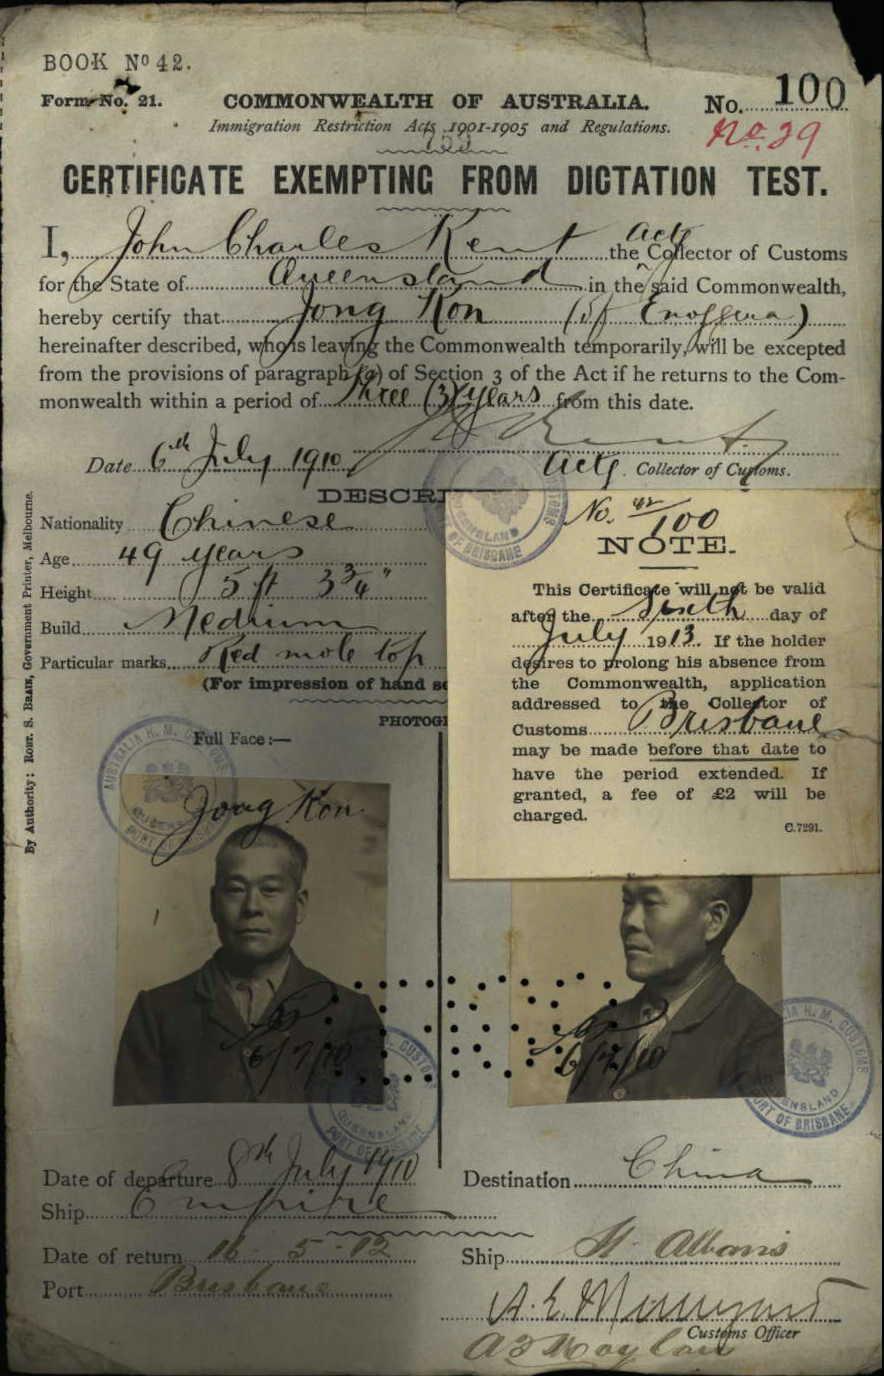 BOOK Nº 42.
Form No. 21.
COMMONWEALTH OF AUSTRALIA.
No. 100
Immigration Restriction Acts 1901-1905 and Regulations.
No. 39
CERTIFICATE EXEMPTING FROM DICTATION TEST.
I, John Charles Kent the Actg Collector of Customs
for the State of Queensland in the said Commonwealth,
hereby certify that Jong Kon (of Enoggera)
hereinafter described, who is leaving the Commonwealth temporarily, will be excepted
from the provisions of paragraph (a) of Section 3 of the Act if he returns to the Com-
monwealth within a period of Three (3) years from this date.
Date 6th July 1910
Actg. Collector of Customs.
DESCRI
Nationality Chinese
Age 49 years
Height 5 ft 3 3/4"
Build Medium
Particular marks Red mole top
(For impression of hand se
PHOTOG
Full Face:—
No. 42/100
NOTE.
This Certificate will not be valid
after the Sixth day of
July 1913. If the holder
desires to prolong his absence from
the Commonwealth, application
addressed to the Collector of
Customs Brisbane
may be made before that date to
have the period extended. If
granted, a fee of £2 will be
charged.
C.7291.
By Authority: ROBT. S. BRAIN, Government Printer, Melbourne.
Jong Kon
6/7/10
6/7/10
PORT OF BRISBANE
Date of departure 8th July 1910
Destination China
Ship Empire
Date of return 16-5-12
Ship St Albans
Port Brisbane
Customs Officer